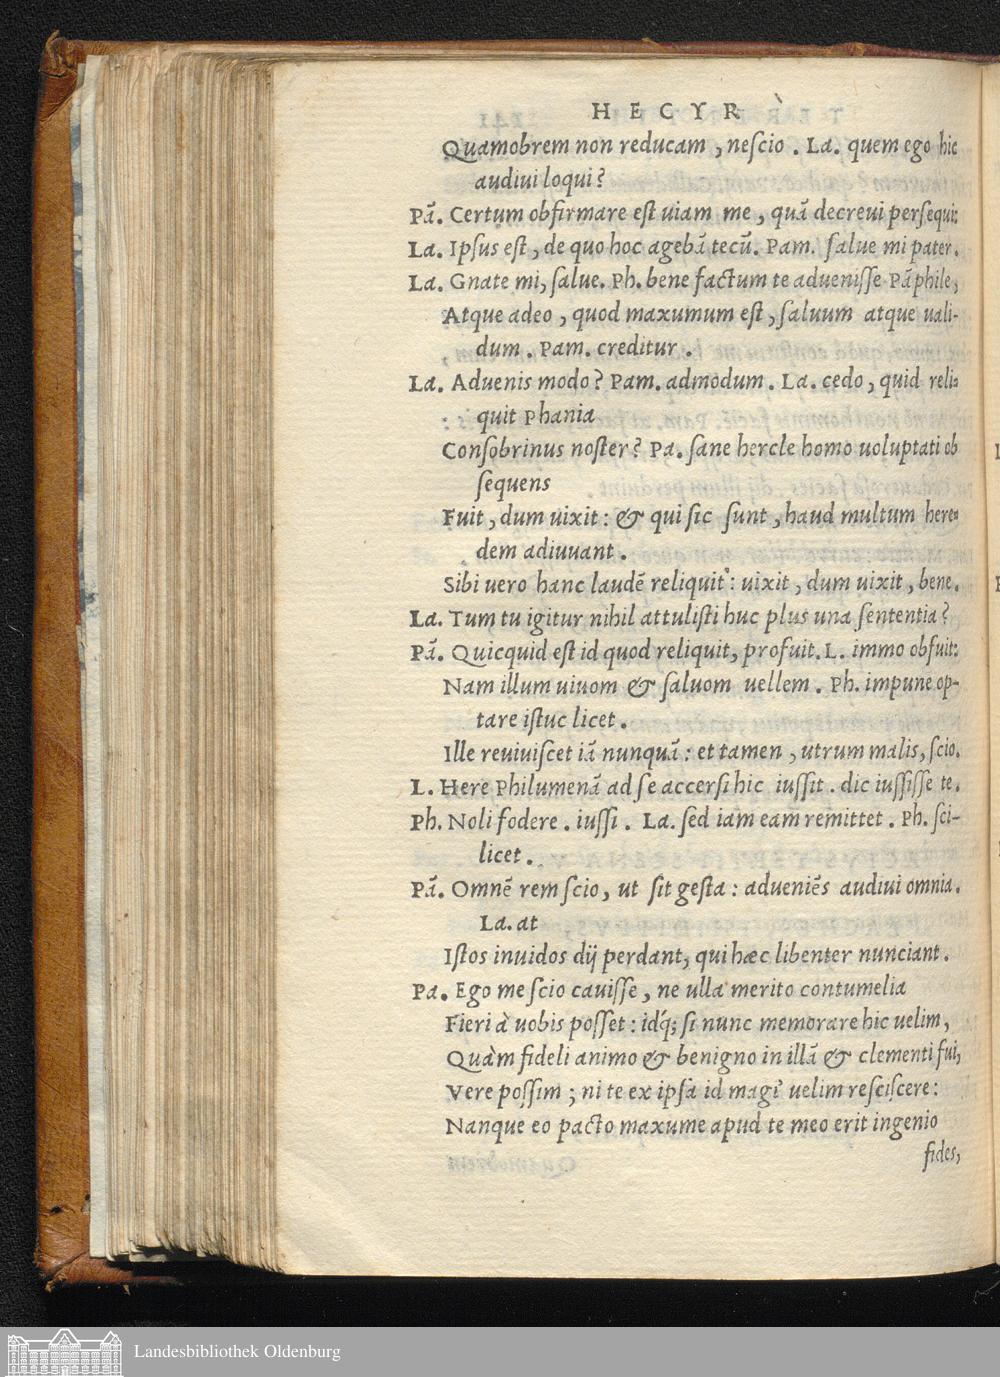 HECYR̀
Quamobrem non reducam, nescio. La. quem ego hic
audiui loqui?
Pā. Certum obfirmare est uiam me, quā decreui persequi:
La. Ipsus est, de quo hoc agebā tecū. Pam. salue mi pater.
La. Gnate mi, salue. Ph. bene factum te aduenisse Pāphile,
Atque adeo, quod maxumum est, saluum atque uali-
dum. Pam. creditur.
La. Aduenis modo? Pam. admodum. La. cedo, quid reli-
quit Phania
Consobrinus noster? Pa. sane hercle homo uoluptati ob
sequens
Fuit, dum uixit: & qui sic sunt, haud multum here-
dem adiuuant.
Sibi uero hanc laudē reliquit: uixit, dum uixit, bene.
La. Tum tu igitur nihil attulisti huc plus una sententia?
Pā. Quicquid est id quod reliquit, profuit. L. immo obfuit:
Nam illum uiuom & saluom uellem. Ph. impune op-
tare istuc licet.
Ille reuiuiscet iā nunquā: et tamen, utrum malis, scio.
L. Here Philumenā ad se accersi hic iussit. dic iussisse te.
Ph. Noli fodere. iussi. La. sed iam eam remittet. Ph. sci-
licet.
Pā. Omnē rem scio, ut sit gesta: adueniēs audiui omnia.
La. at
Istos inuidos dij perdant, qui hæc libenter nunciant.
Pa. Ego me scio cauisse, ne ulla merito contumelia
Fieri à uobis posset: idq́; si nunc memorare hic uelim,
Quàm fideli animo & benigno in illā & clementi fui,
Vere possim; ni te ex ipsa id magi' uelim resciscere:
Nanque eo pacto maxume apud te meo erit ingenio
fides,
Landesbibliothek Oldenburg